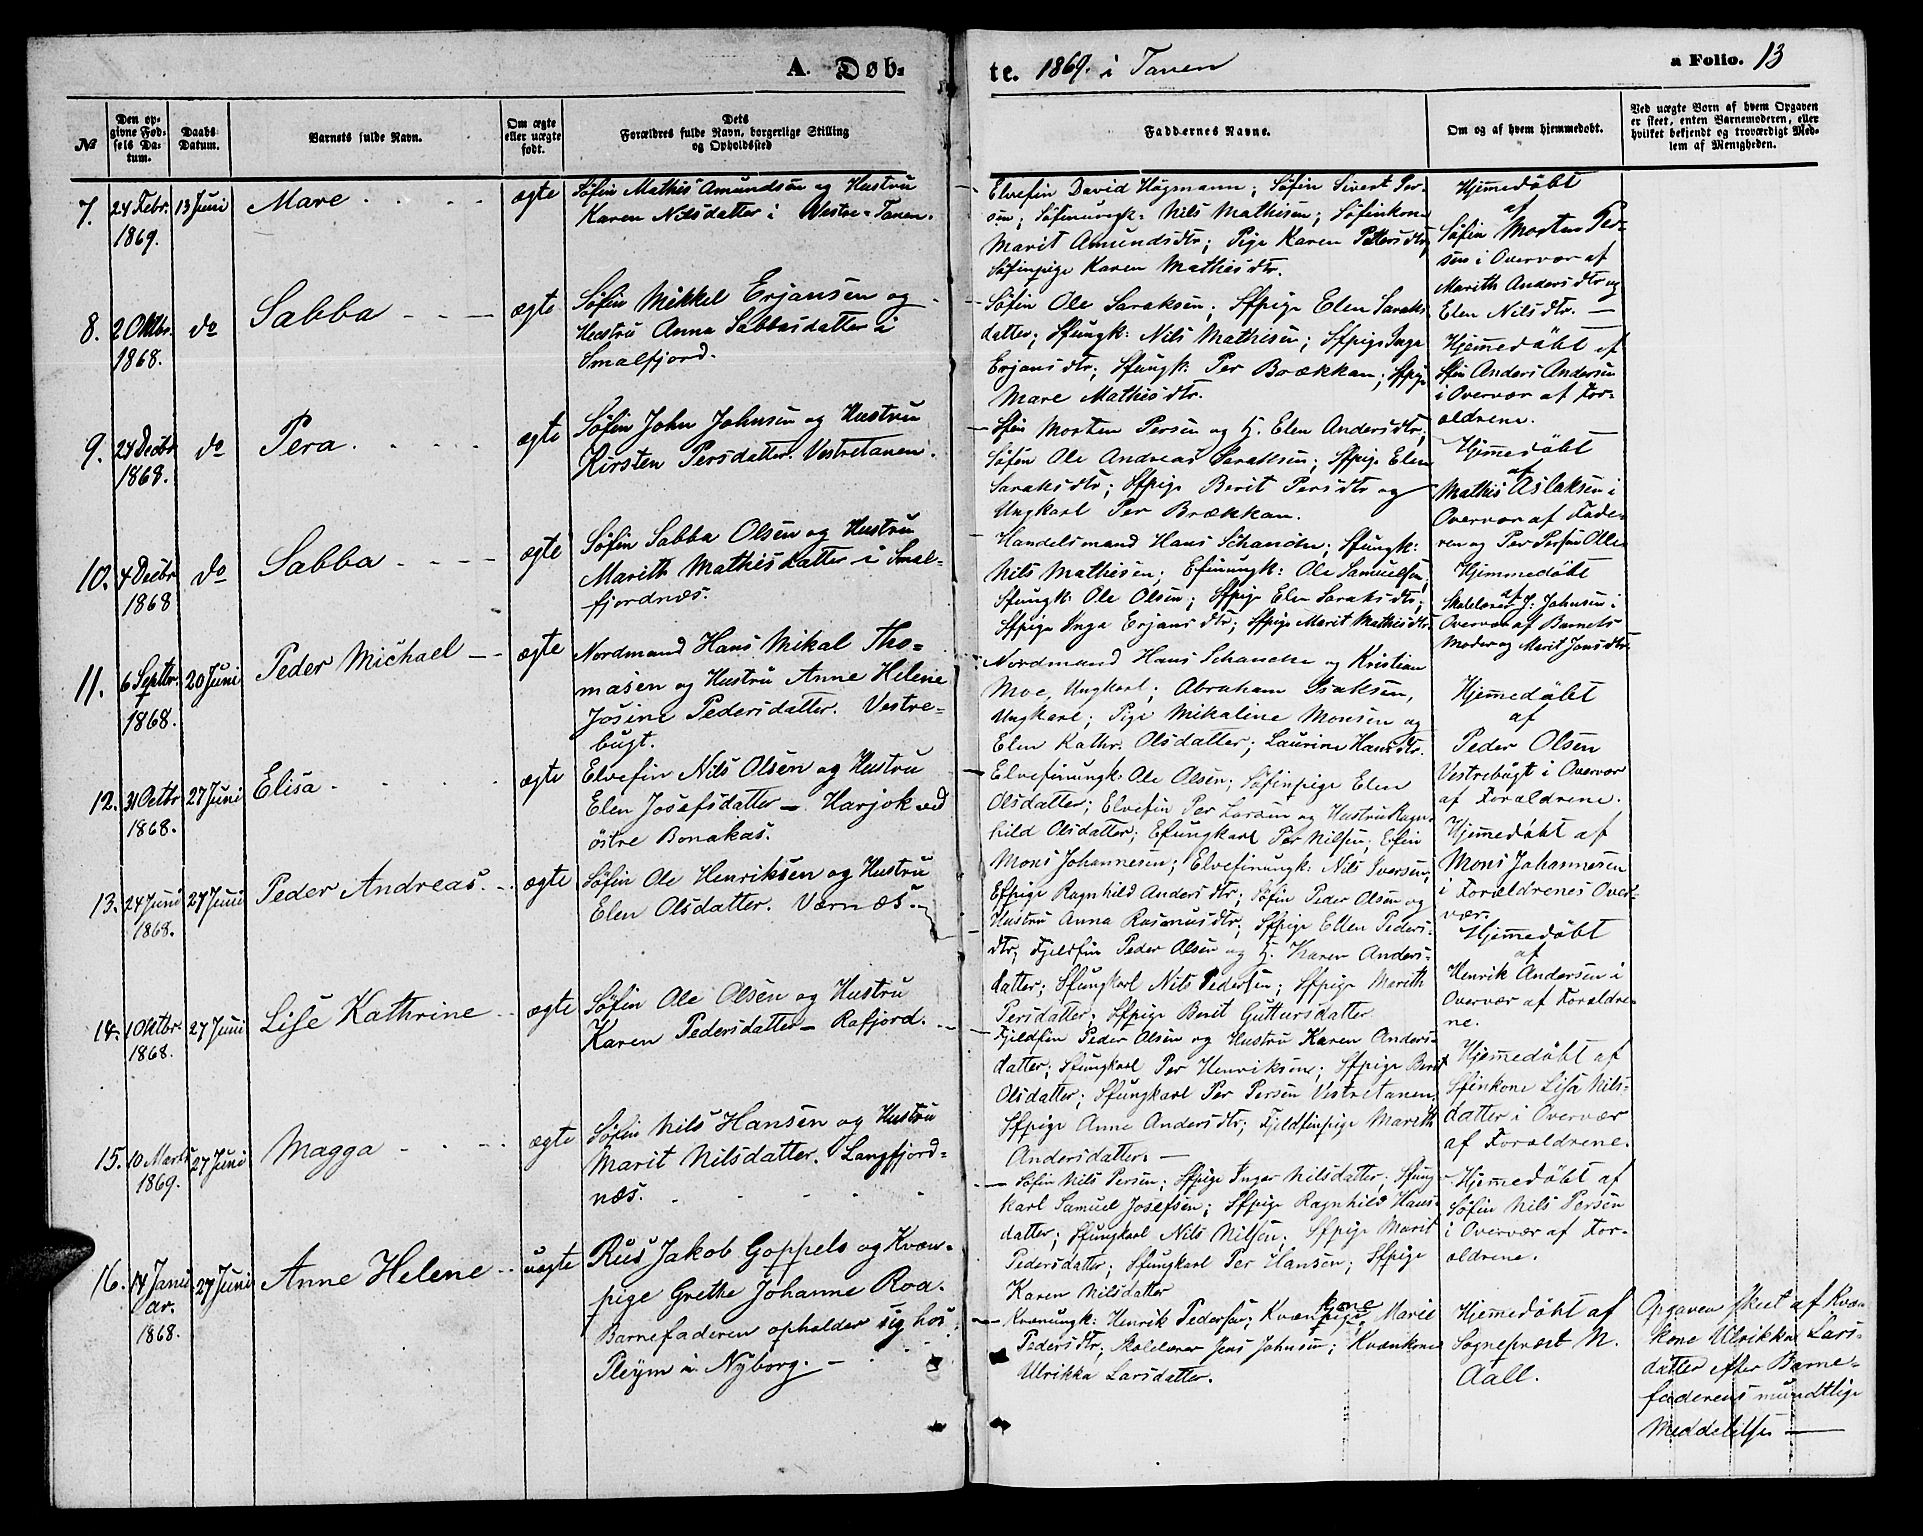 A. Døb-
te. 1869. i Tanen
a Folio. 13
№
Den op-
givne Fød-
sels Da-
tum.
Daabs
Datum.
Barnets fulde Navn.
Om ægte
eller uægte
født.
Dets
Forældres fulde Navn, borgerlige Stilling
og Opholdssted
Faddernes Navne.
Om og af hvem hjemmedøbt.
Ved uægte Børn af hvem Opgaven
er skeet, enten Barnemoderen, eller
hvilket bekjendt og troværdigt Med-
lem af Menigheden.
7.
24 Febr.
1869.
13 Juni
Mare
ægte
Søfin Mathis Amundsen og Hustru
Karen Nilsdatter i Vestre-Tanen.
Elvefin David Högmann; Søfin Sivert Per-
sen; Søfinungk: Nils Mathisen; Søfinkone
Marit Amundsdtr; Pige Karen Pettersdtr;
Søfinpige Karen Mathisdtr.
Hjemmedøbt
af
Søfin Morten Per-
sen i Overvær af
Marith Andersdtr og
Elen Nilsdtr.
8.
2 Oktbr.
1868.
do
Sabba
ægte
Søfin Mikkel Erjansen og
Hustru Anna Sabbasdatter i
Smalfjord.
Søfin Ole Saraksen; Sfpige Elen Saraks-
datter; Sfungk: Nils Mathisen; Sfpige Inga
Erjansdtr; Sfungk: Per Brækkan; Sfpige
Mare Mathisdtr.
Hjemmedøbt af
Sfin Anders Andersen
i Overvær af For-
ældrene.
9.
24 Decbr
1868.
do
Pera
ægte
Søfin John Johnsen og Hustru
Kirsten Persdatter. Vestretanen.
Sfin Morten Persen og H. Elen Andersdtr;
Søfin Ole Andreas Saraksen; Sfpige Elen
Saraksdtr; Sfpige Berit Persdtr og
Ungkarl Per Brækkan.
Hjemmedøbt
af
Mathis Aslaksen i
Overvær af Fade-
ren og Per Persen Olle
10.
4 Decbr
1868
do
Sabba
ægte
Søfin Sabba Olsen og Hustru
Marith Mathisdatter i Smal-
fjordnæs.
Handelsmand Hans Schanche; Sfungk:
Nils Mathisen; Efinungk: Ole Samuelsen;
Sfungk: Ole Olsen; Sfpige Elen Saraksdtr;
Sfpige Inga Erjansdtr; Sfpige Marit Mathisdtr
Hjemmedøbt
af
Skolelærer J: Johnsen i
Overvær af Barnets
Moder og Marit Jonsdtr.
11.
6 Septbr.
1868.
20 Juni
Peder Michael
ægte
Nordmand Hans Mikal Tho-
masen og Hustru Anne Helene
Josine Pedersdatter. Vestre-
bugt.
Nordmand Hans Schanche og Kristian
Moe, Ungkarl; Abraham Isaksen,
Ungkarl; Pige Mikaline Monsen og
Elen Kathr. Olsdatter; Laurine Hansdtr.
Hjemmedøbt
af
Peder Olsen
Vestrebugt i Overvær
af Forældrene.
12.
31 Octbr
1868.
27 Juni
Elisa
ægte
Elvefin Nils Olsen og Hustru
Elen Josefsdatter - Harjok ved
østre Bonakas.
Elvefinungk: Ole Olsen; Søfinpige Elen
Olsdatter; Elvefin Per Larsen og Hustru Ragn-
hild Olsdatter; Efungkarl Per Nilsen; Efin
Mons Johannesen; Elvefinungk: Nils Iversen;
Efpige Ragnhild Andersdtr;
Hjemmedøbt af
Mons Johannesen
i Forældrenes Over-
vær.
13.
24 Juni
1868.
27 Juni
Peder Andreas
ægte
Søfin Ole Henriksen og Hustru
Elen Olsdatter. Værnæs.
Søfin Peder Olsen og
Hustru Anna Rasmusdtr; Sfpige Ellen Peders-
dtr; Fjeldfin Peder Olsen og H. Karen Anders-
datter; Sfungkarl Nils Pedersen; Sfpige Marith
Persdatter; Sfpige Berit Guttursdatter
Hjemmedøbt
af
Henrik Andersen i
Overvær af Forældre-
ne.
14.
1 Oktbr.
1868.
27 Juni
Lise Kathrine
ægte
Søfin Ole Olsen og Hustru
Karen Pedersdatter - Rafjord.
Fjeldfin Peder Olsen og Hustru Karen Anders-
datter; Sfungkarl Per Henriksen; Sfpige Berit
Olsdatter; Sfungkarl Per Persen Vestretanen,
Sfpige Anne Andersdtr; Fjeldfinpige Marith
Andersdatter.
Hjemmedøbt af
Sfinkone Lisa Nils-
datter i Overvær
af Forældrene.
15.
10 Marts
1869.
27 Juni
Magga
ægte
Søfin Nils Hansen og Hustru
Marit Nilsdatter. Langfjord-
næs.
Søfin Nils Persen; Sfpige Inger Nilsdatter; Sfung-
karl Samuel Josefsen; Sfpige Ragnhild Hans-
datter; Sfungkarl Nils Nilsen; Sfpige Marit
Pedersdatter; Sfungkarl Per Hansen; Sfpige
Karen Nilsdatter
Hjemmedøbt af
Søfin Nils Persen
i Overvær af For-
ældrene.
16.
14 Janu-
ar.
1868.
27 Juni
Anne Helene
uægte
Rus Jakob Goppels og Kvæn-
pige Grethe Johanne Roa.
Barnefaderen opholder sig hos
Pleym i Nyborg.
Kvænungk: Henrik Pedersen; Kvænpige kone Marie
Pedersdtr; Skolelærer Jens Johnsen; Kvænkone
Ulrikka Larsdatter.
Hjemmedøbt af
Sogneprest N.
Aall.
Opgaven skeet af Kvæn-
kone Ulrikka Lars-
datter efter Barne-
faderens mundtlige
Meddelelse